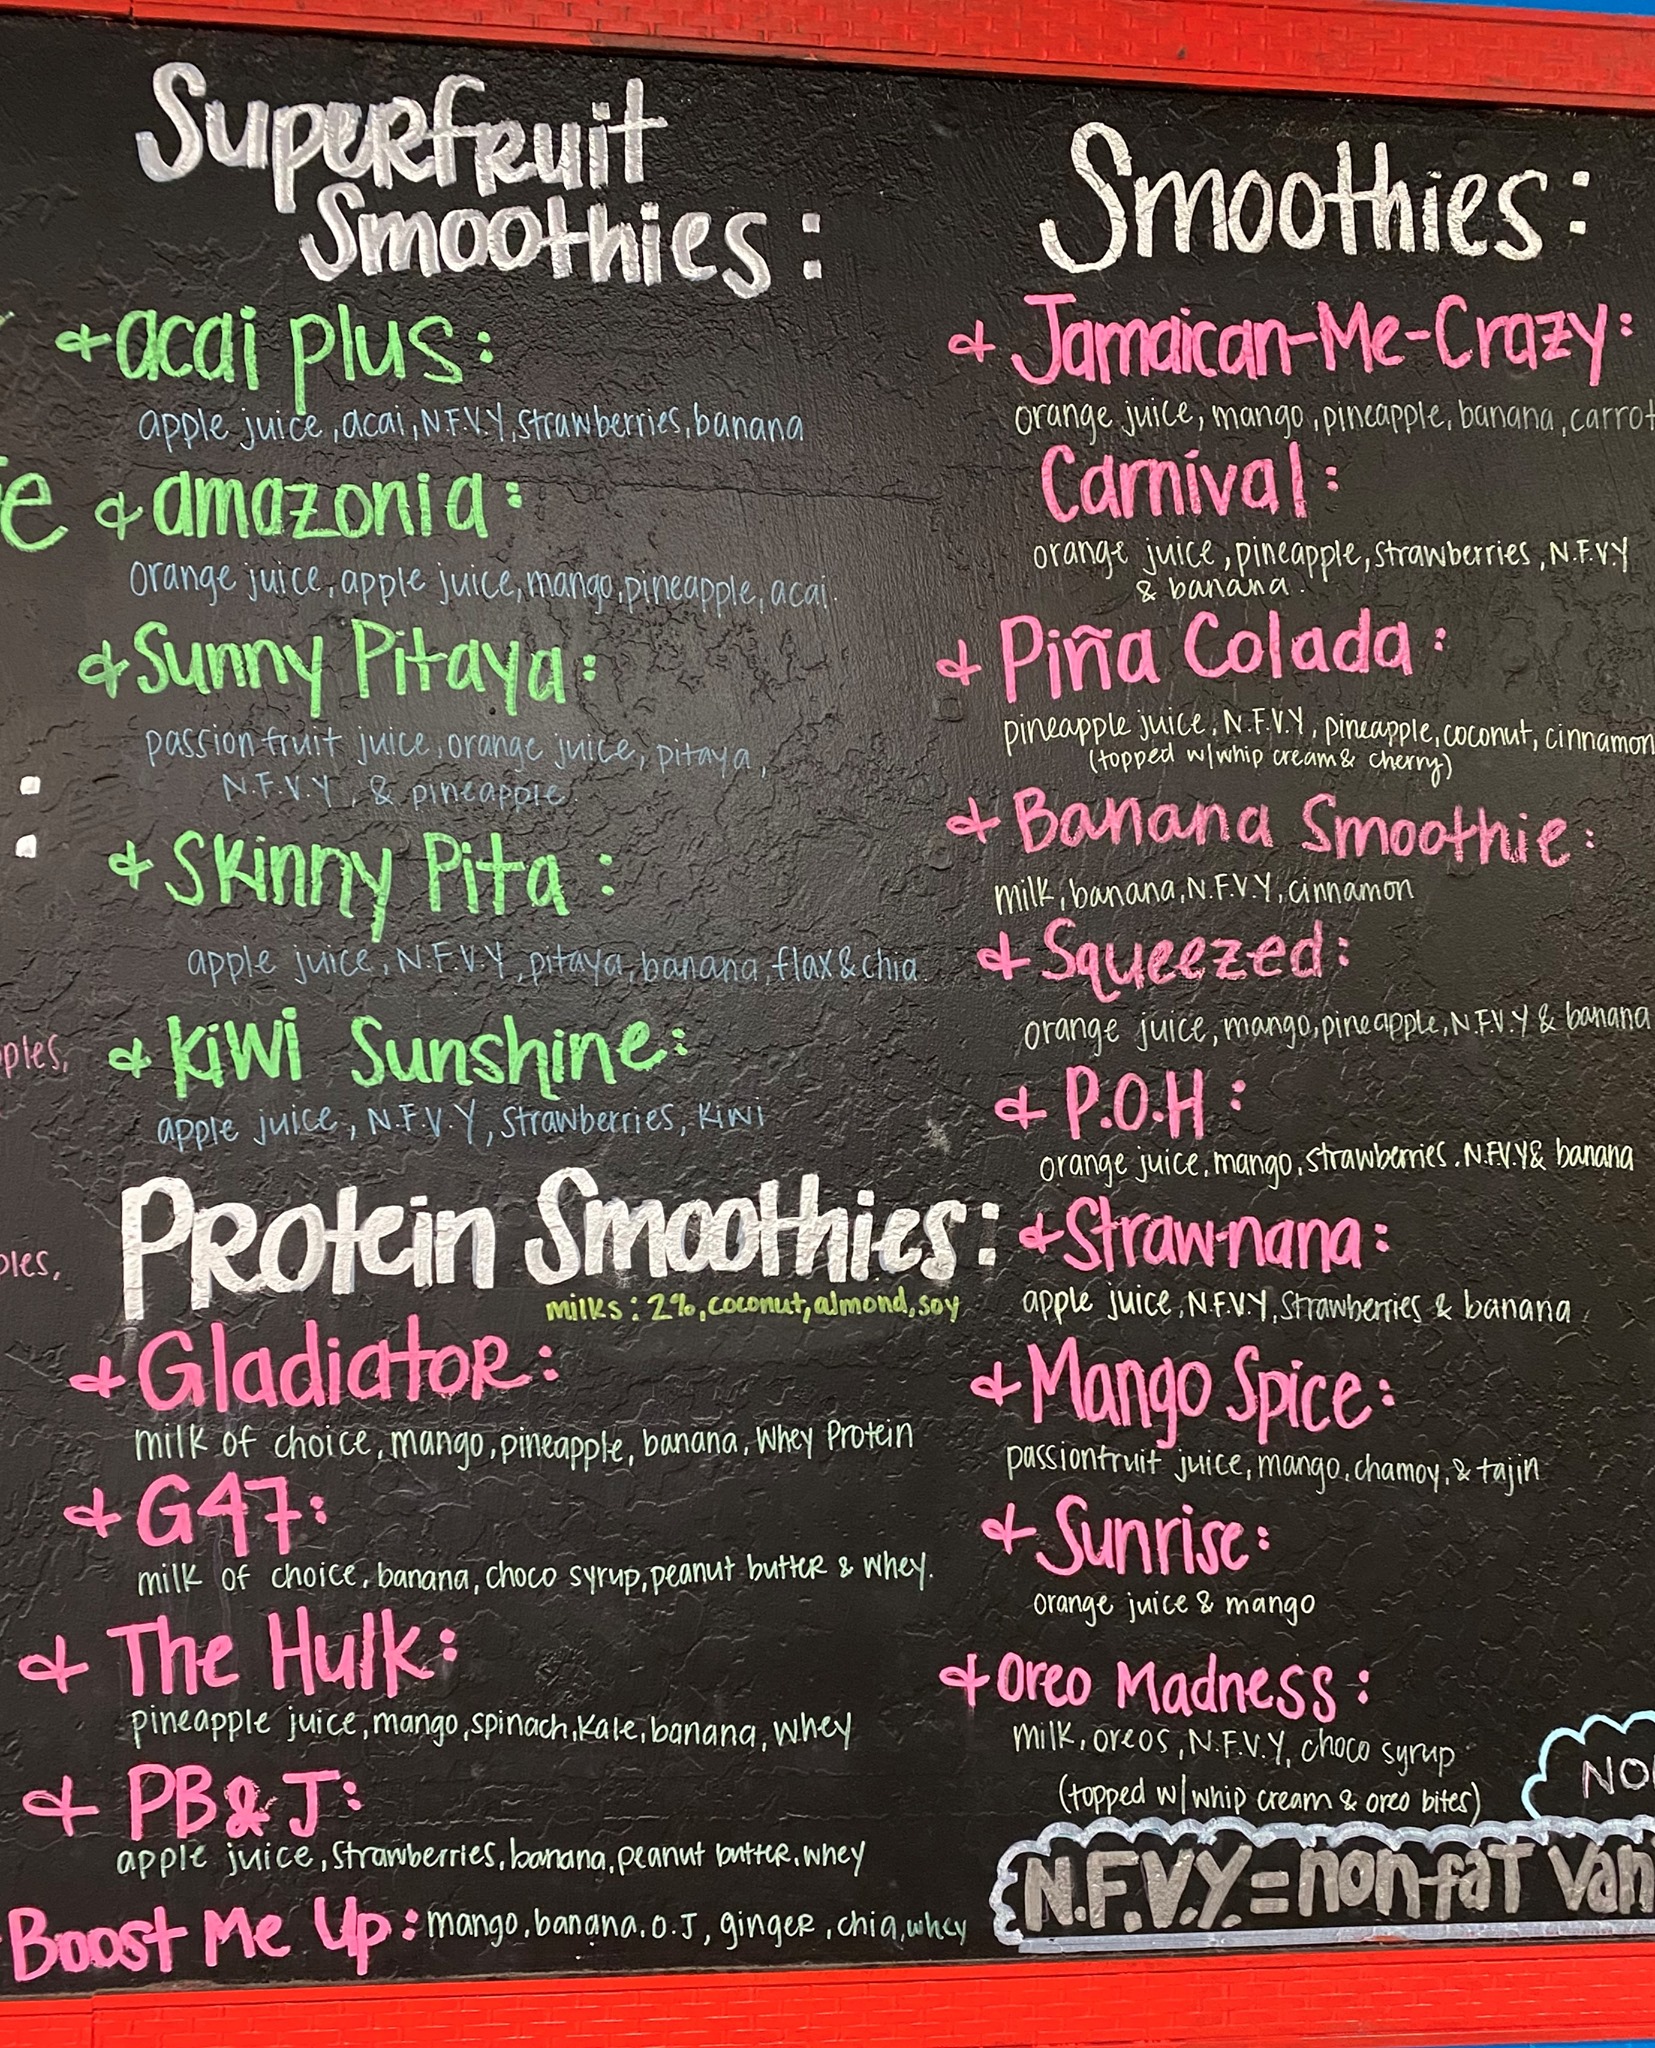 Superfruit
Smoothies:
acai plus:
apple juice, acai, N.F.V.Y, strawberries, banana
amazonia:
orange juice, apple juice, mango, pineapple, acai.
Sunny Pitaya:
passionfruit juice, orange juice, pitaya,
N.F.V.Y, & pineapple
Skinny Pita:
apple juice, N.F.V.Y, pitaya, banana, flax & chia
Kiwi Sunshine:
apple juice, N.F.V.Y, strawberries, kiwi
Protein Smoothies:
milks: 2%, coconut, almond, soy
Gladiator:
milk of choice, mango, pineapple, banana, whey Protein
G47:
milk of choice, banana, choco syrup, peanut butter & whey.
The Hulk:
pineapple juice, mango, spinach, kale, banana, whey
PB&J:
apple juice, strawberries, banana, peanut butter, whey
Boost Me Up: mango, banana, O.J, ginger, chia, whey
Smoothies:
Jamaican-Me-Crazy:
orange juice, mango, pineapple, banana, carrot
Carnival:
orange juice, pineapple, strawberries, N.F.V.Y
& banana.
Piña Colada:
pineapple juice, N.F.V.Y, pineapple, coconut, cinnamon
(topped w/whip cream & cherry)
Banana Smoothie:
milk, banana, N.F.V.Y, cinnamon
Squeezed:
orange juice, mango, pineapple, N.F.V.Y & banana
P.O.H:
orange juice, mango, strawberries, N.F.V.Y & banana
Straw-nana:
apple juice, N.F.V.Y, strawberries & banana
Mango Spice:
passionfruit juice, mango, chamoy, & tajin
Sunrise:
orange juice & mango
Oreo Madness:
milk, oreos, N.F.V.Y, choco syrup
(topped w/whip cream & oreo bites)
N.F.V.Y. = non-fat van